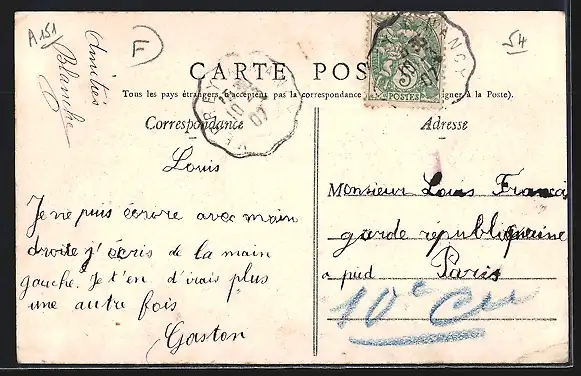 A151
Amitiés
Blanche
F
54
CARTE POS
Tous les pays étrangers n'acceptent pas la correspondance
à la Poste).
Correspondance
Adresse
NANCY
07
5
POSTES
10
07
Louis
Je ne puis écrore avec main
droite j'écris de la main
gauche. Je t'en d'irais plus
une autre fois
Gaston
Monsieur Louis Francois
garde républiquaine
a pied Paris
10e Cie